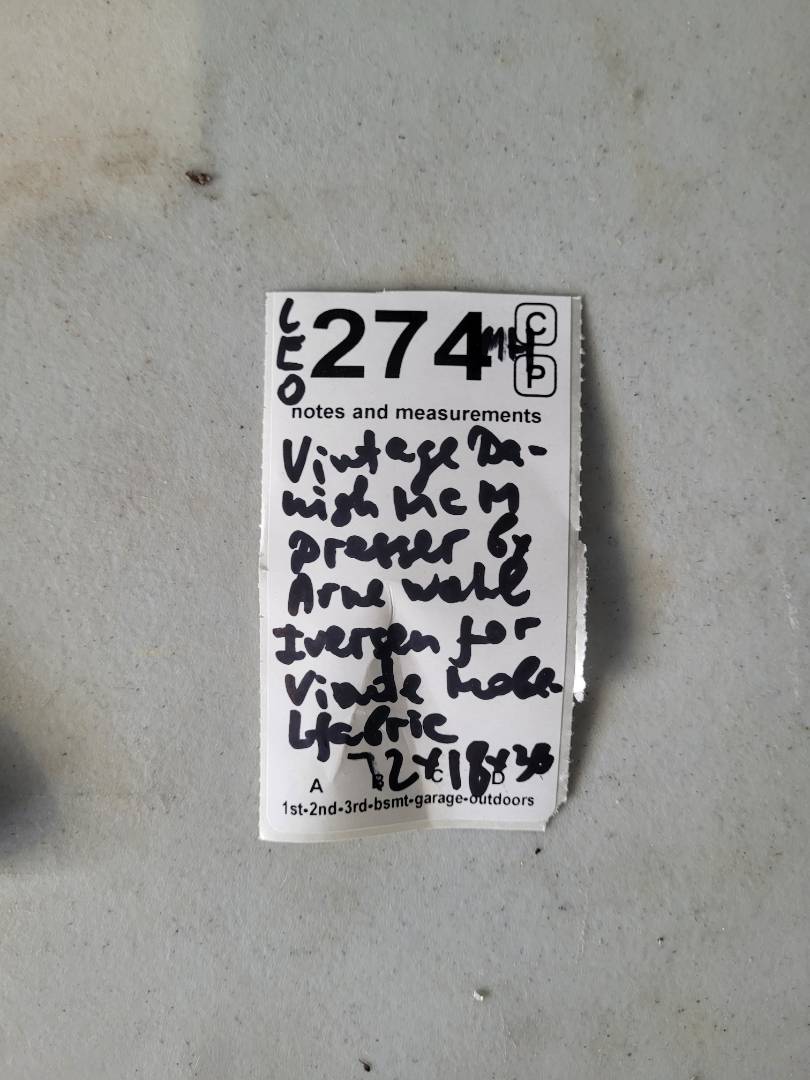 LEO 274 MH C P
notes and measurements
Vintage Da-
nish McM
Dresser by
Arne Wahl
Iversen for
Vinde Mobe-
lfabric
72x18x30
A B C D
1st-2nd-3rd-bsmt-garage-outdoors